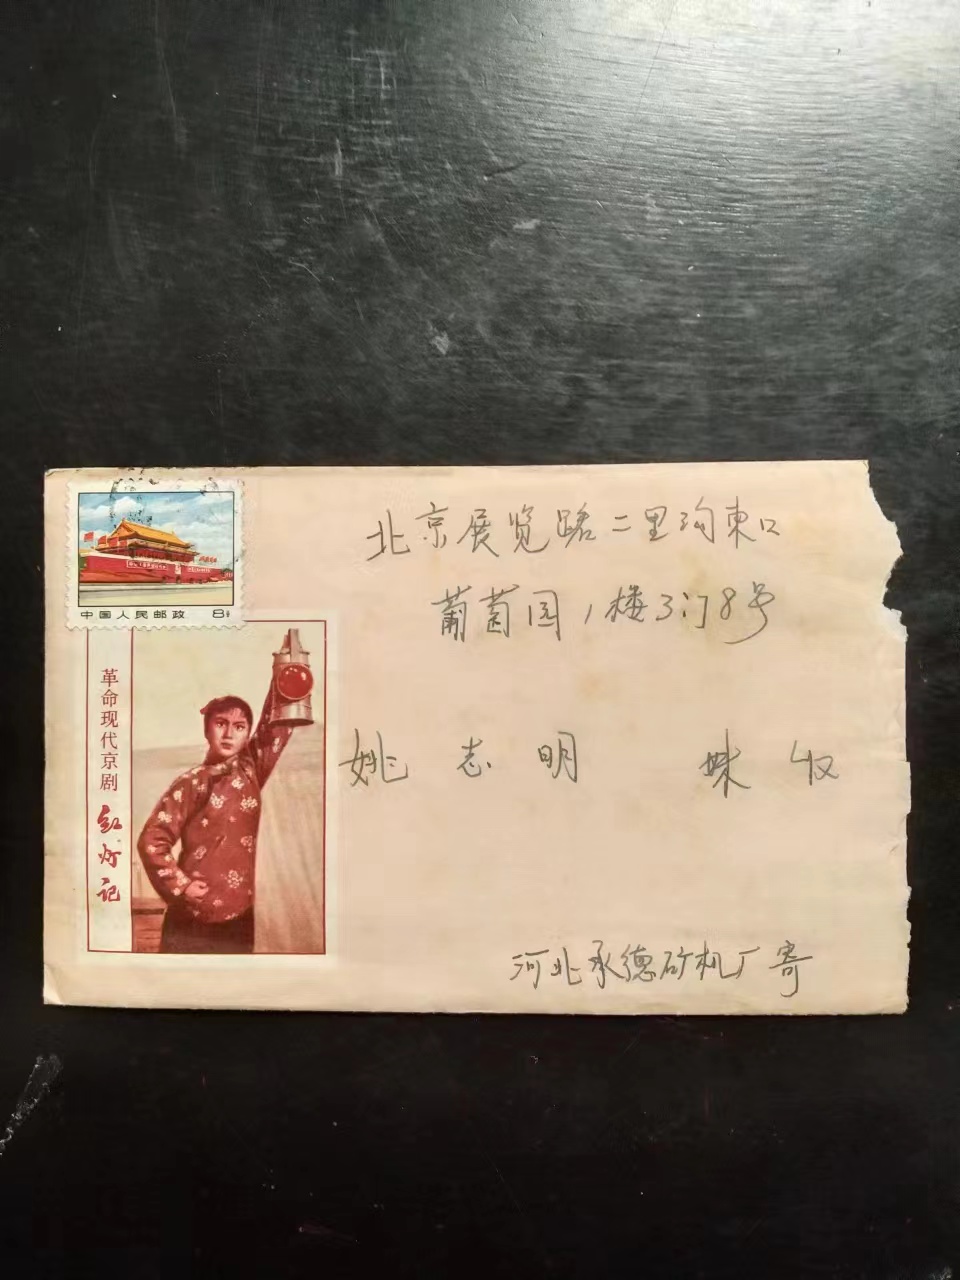 北京展览路二里沟东口
葡萄园1楼3门8号
姚志明 妹收
河北承德矿机厂寄
中国人民邮政 8分
革命现代京剧
红灯记